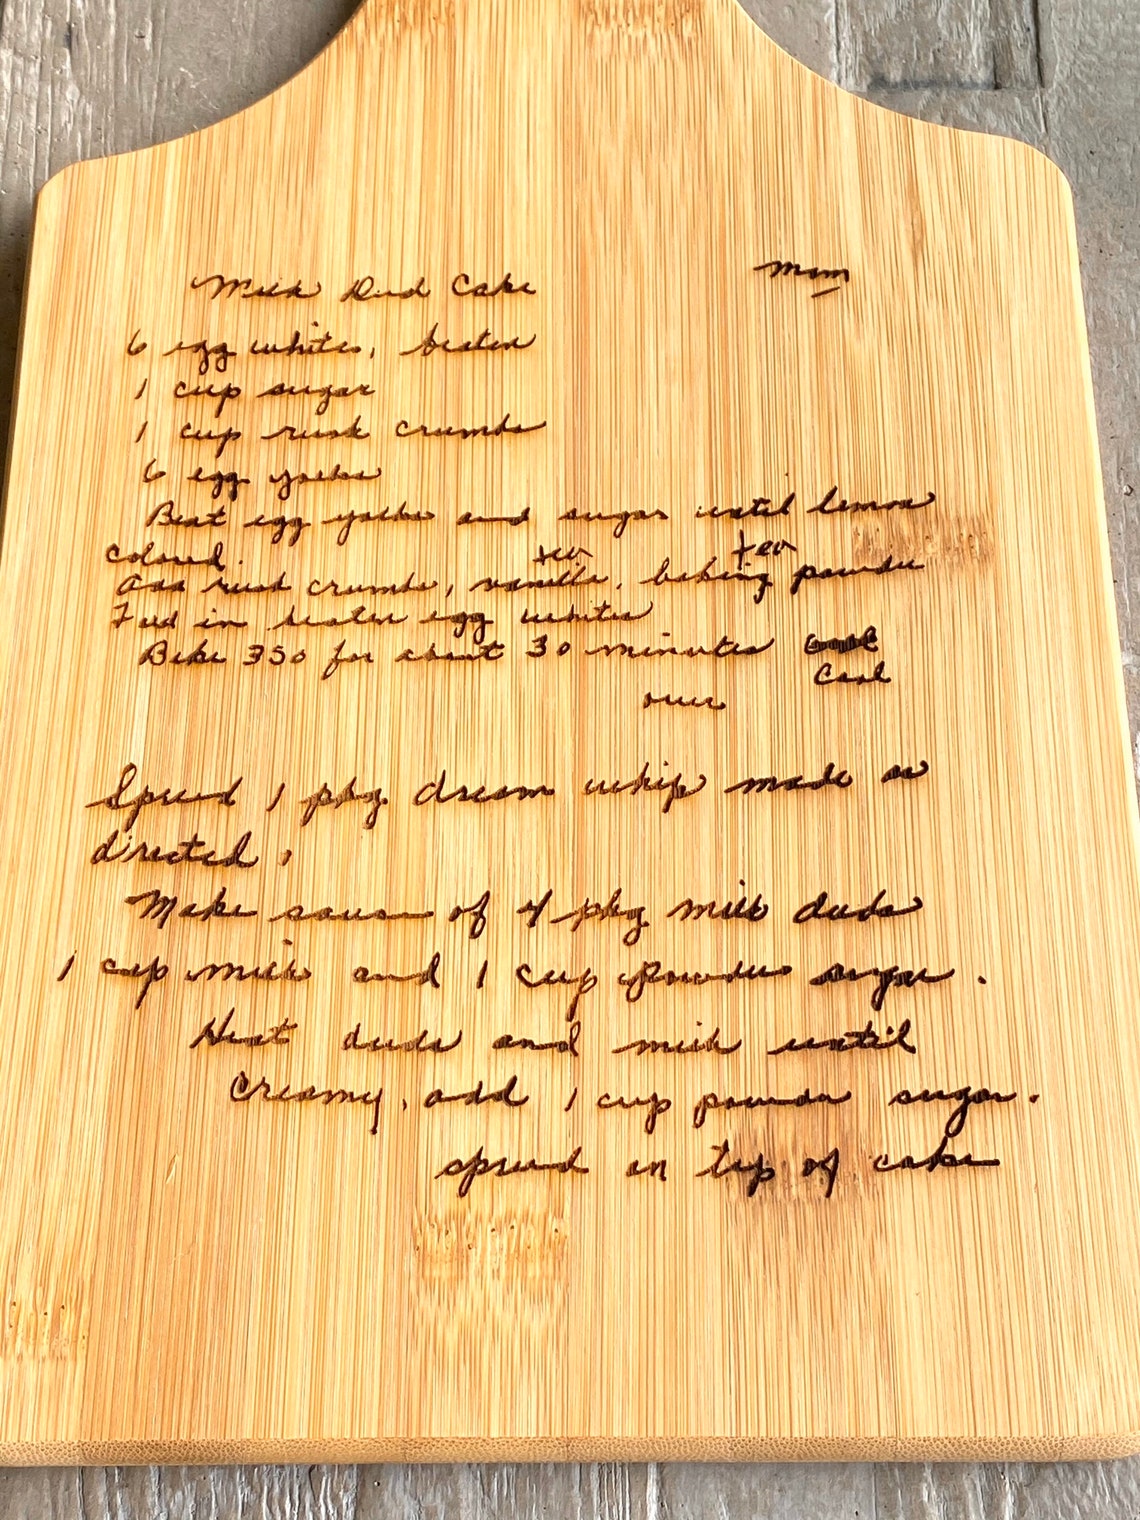 Milk Dud Cake
Mom
6 egg whites, beaten
1 cup sugar
1 cup rusk crumbs
6 egg yolks
Beat egg yolks and sugar until lemon
colored.
tea tea
Add rusk crumbs, vanilla, baking powder
Fold in beaten egg whites
Bake 350 for about 30 minutes
Cool
over
Spread 1 pkg dream whip made as
directed.
Make sauce of 4 pkg milk duds
1 cup milk and 1 cup powder sugar.
Heat duds and milk until
creamy, add 1 cup powder sugar.
spread on top of cake